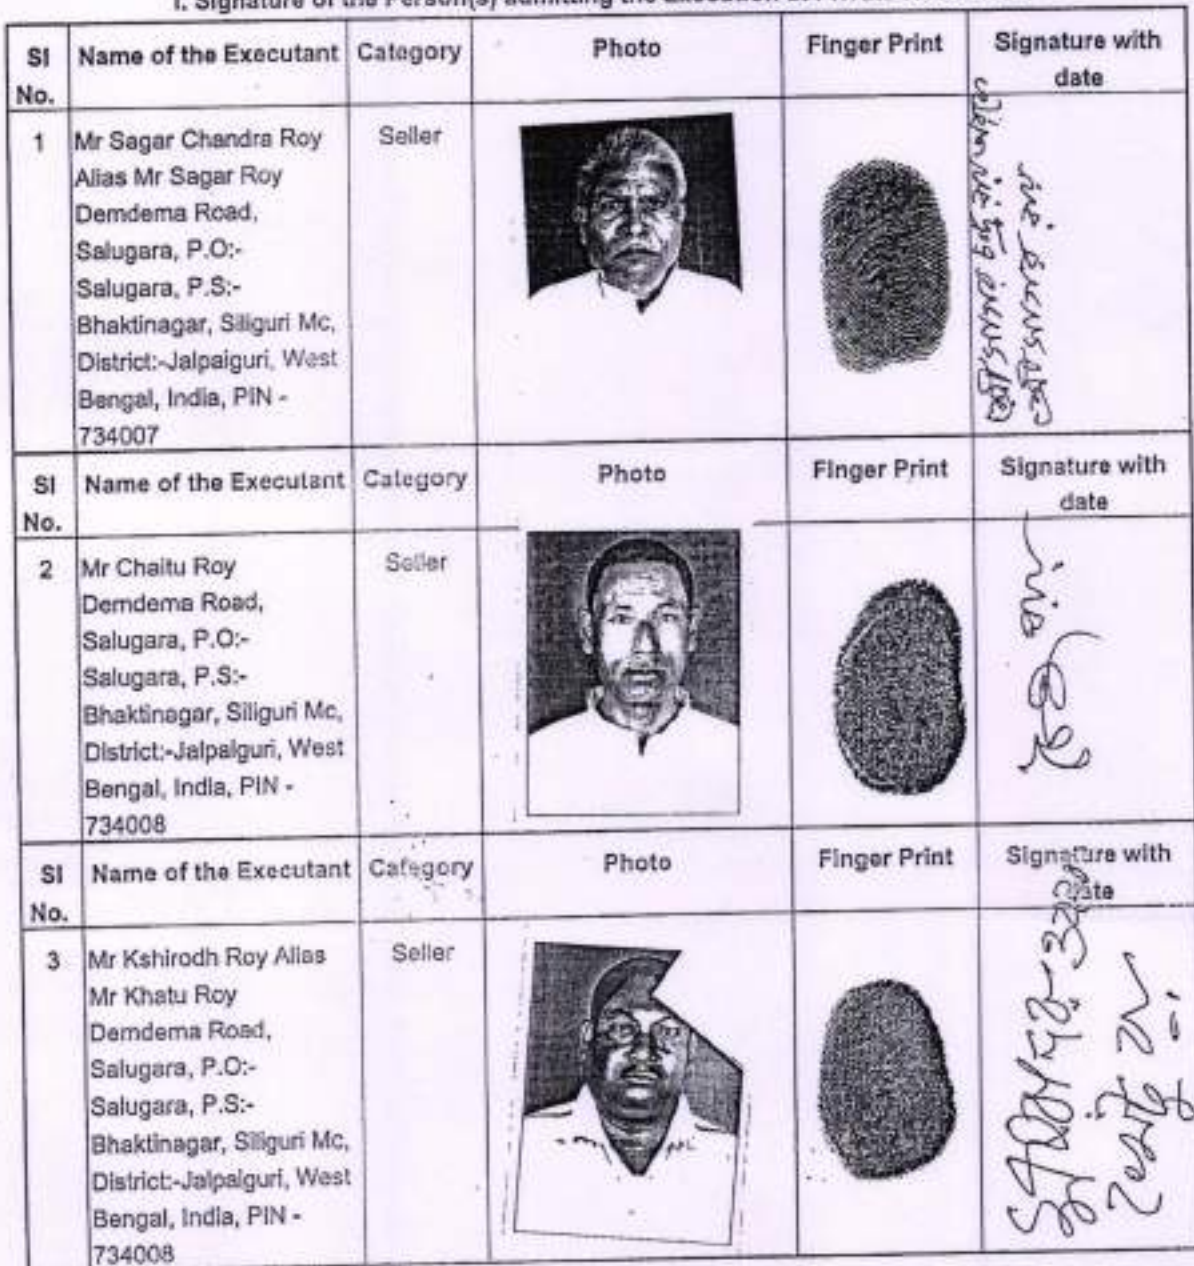 I. Signature of the Person(s) admitting the Execution at
Sl No. Name of the Executant Category Photo Finger Print Signature with date
1 Mr Sagar Chandra Roy Seller
Alias Mr Sagar Roy
Demdema Road,
Salugara, P.O:-
Salugara, P.S:-
Bhaktinagar, Siliguri Mc,
District:-Jalpaiguri, West
Bengal, India, PIN -
734007
Sl No. Name of the Executant Category Photo Finger Print Signature with date
2 Mr Chaitu Roy Seller
Demdema Road,
Salugara, P.O:-
Salugara, P.S:-
Bhaktinagar, Siliguri Mc,
District:-Jalpaiguri, West
Bengal, India, PIN -
734008
Sl No. Name of the Executant Category Photo Finger Print Signature with date
3 Mr Kshirodh Roy Alias Seller
Mr Khatu Roy
Demdema Road,
Salugara, P.O:-
Salugara, P.S:-
Bhaktinagar, Siliguri Mc,
District:-Jalpaiguri, West
Bengal, India, PIN -
734008